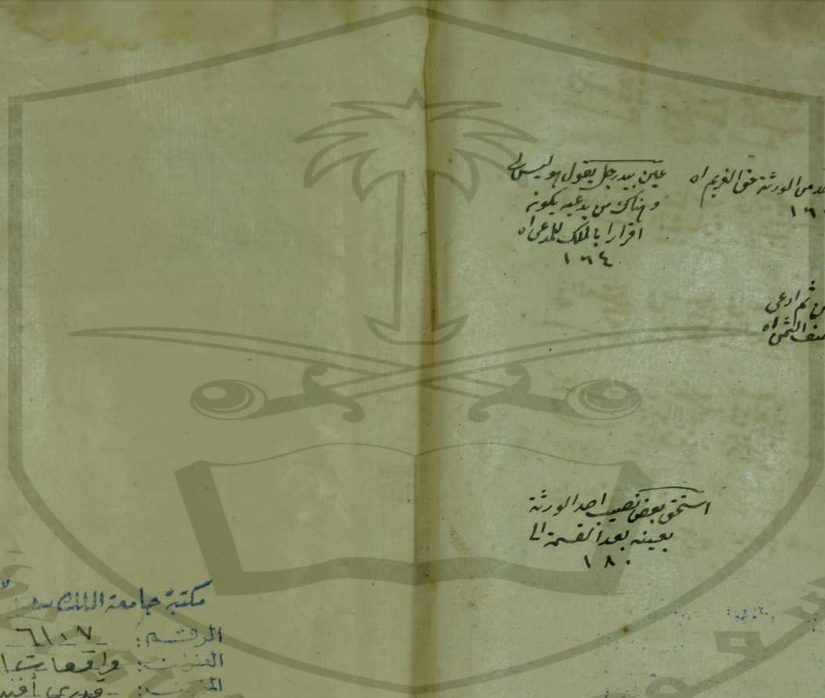 من الورثة حق الغريم اه
عين بيد رجل يقول هو ليس لي
وهناك من يدعيه يكون
اقرارا بالملك للمدعي اه
١٦٤
ثم ادعى
الثمن اه
استحق بعض نصيب احد الورثة
بعينه بعد القسمة الخ
١٨٠
مكتبة جامعة الملك
الرقم: ٦١٠٧
العنوان: واقعات
قدري أفند